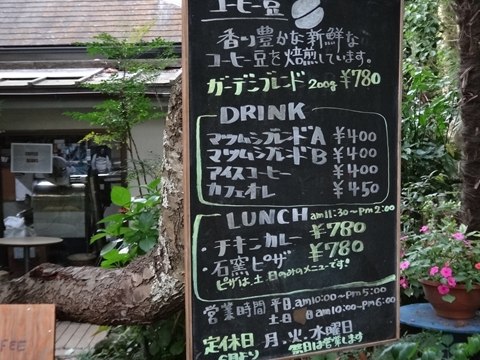 コーヒー豆
香り豊かな新鮮な
コーヒー豆を焙煎しています。
ガーデンブレンド 200g ¥780
DRINK
マツムシブレンドA ¥400
マツムシブレンドB ¥400
アイスコーヒー ¥400
カフェオレ ¥450
LUNCH am11:30~pm2:00
・チキンカレー ¥780
・石窯ピザ ¥780
ピザは、土、日のみのメニューです!
営業時間 平日 am10:00~pm5:00
土.日 am10:00~pm6:00
定休日 月、火、水曜日
6月より 祭日は営業します
FEE